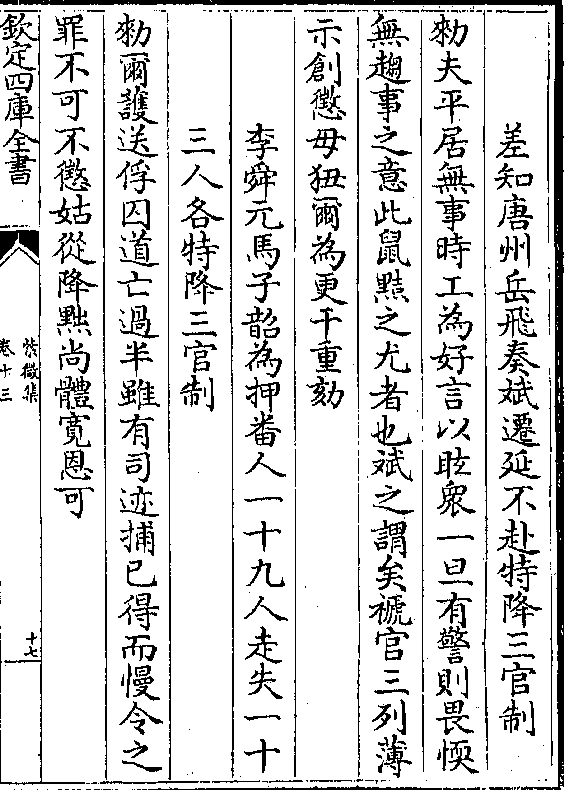 差知唐州岳飛奏斌遷延不赴特降三官制
勑夫平居無事時工為好言以眩衆一旦有警則畏愞
無趨事之意此鼠黠之尤者也斌之謂矣褫官三列薄
示創懲毋狃爾為更干重劾
李舜元馬子韶為押番人一十九人走失一十
三人各特降三官制
勑爾護送俘囚道亡過半雖有司迹捕已得而慢令之
罪不可不懲姑從降黜尚體寛恩可
欽定四庫全書
紫微集
卷十三
十七